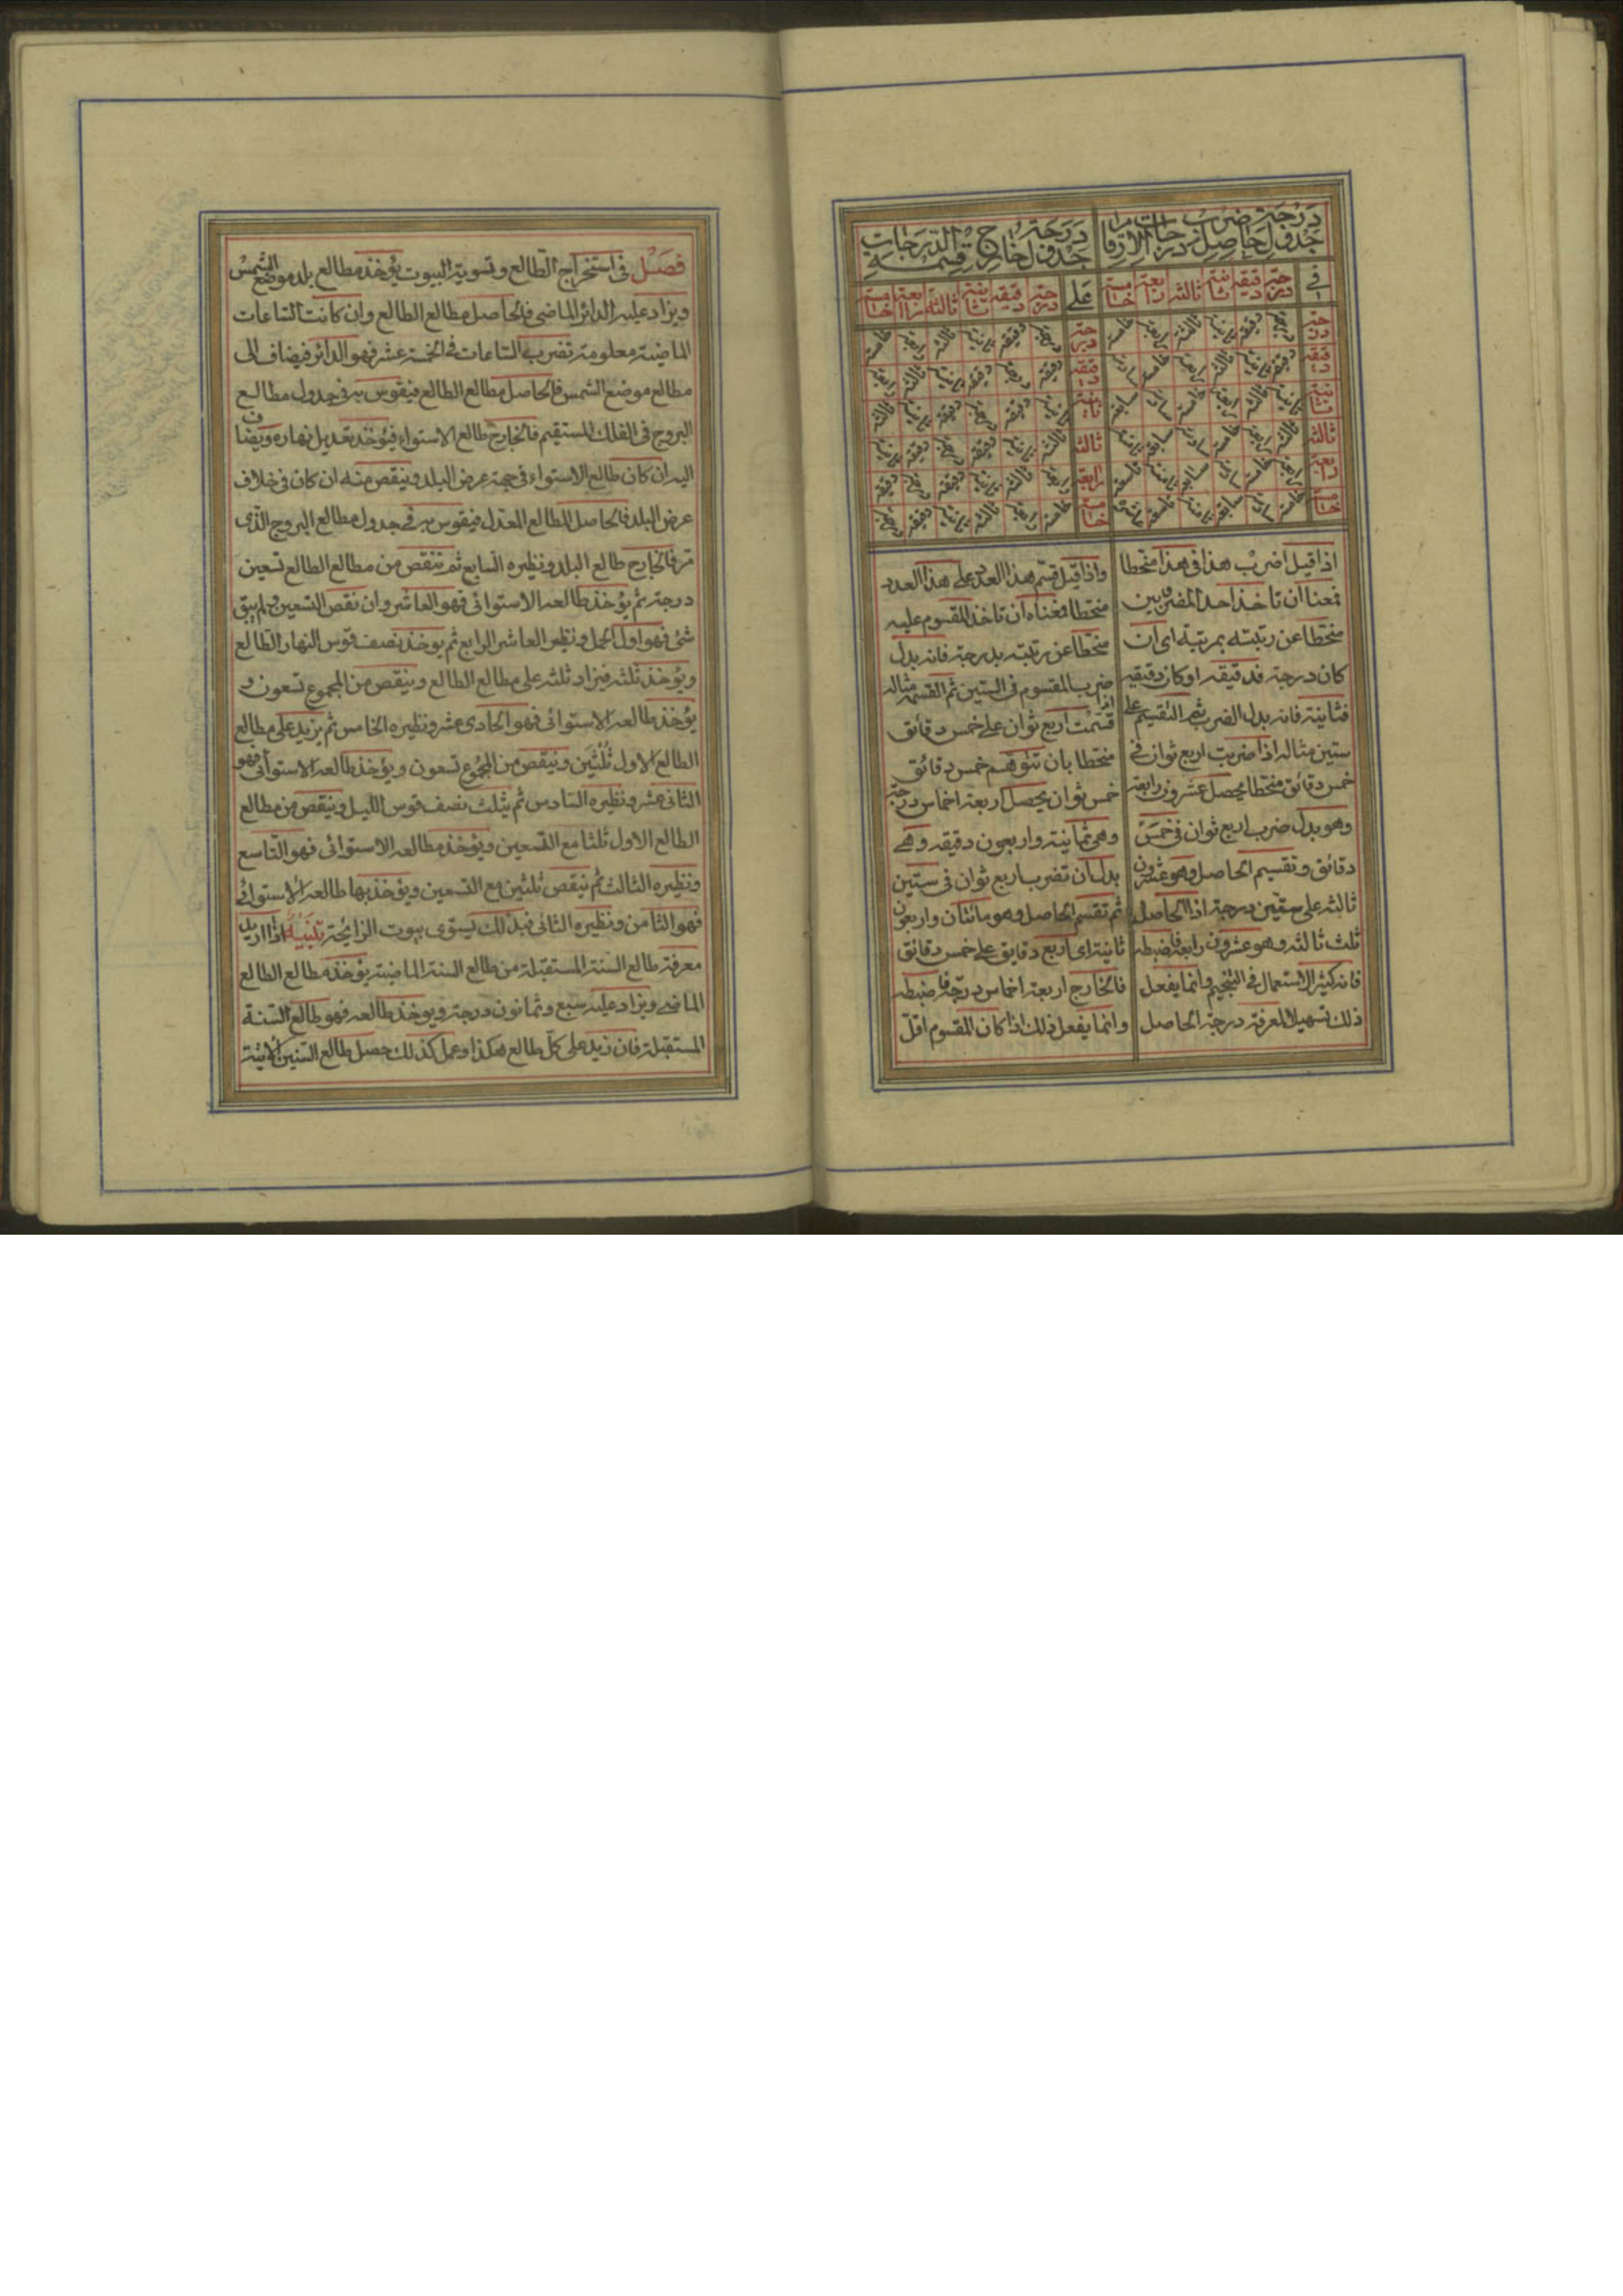 جدول حاصل ضرب درجات الارقام درجة
جدول خارج قسمة الدرجات درجة
في درجة دقيقة ثانية ثالثة رابعة خامسة
على درجة دقيقة ثانية ثالثة رابعة خامسة
درجة درجة دقيقة ثانية ثالثة رابعة خامسة
دقيقة دقيقة ثانية ثالثة رابعة خامسة سادسة
ثانية ثانية ثالثة رابعة خامسة سادسة سابعة
ثالثة ثالثة رابعة خامسة سادسة سابعة ثامنة
رابعة رابعة خامسة سادسة سابعة ثامنة تاسعة
خامسة خامسة سادسة سابعة ثامنة تاسعة عاشرة
درجة درجة دقيقة ثانية ثالثة رابعة خامسة
دقيقة دقيقة درجة دقيقة ثانية ثالثة رابعة
ثانية ثانية دقيقة درجة دقيقة ثانية ثالثة
ثالثة ثالثة ثانية دقيقة درجة دقيقة ثانية
رابعة رابعة ثالثة ثانية دقيقة درجة دقيقة
خامسة خامسة رابعة ثالثة ثانية دقيقة درجة
اذا قيل اضرب هذا في هذا منحطا
فمعنا ان تاخذ احد المضروبين
منحطا عن رتبته بمرتبة اى ان
كان درجة فدقيقة او كان دقيقة
فثانية فانه بدل الضرب ثم التقسيم على
ستين مثاله اذا ضربت اربع ثوان في
خمس دقائق منحطا يحصل عشرون رابعة
وهو بدل ضرب اربع ثوان في خمس
دقائق وتقسيم الحاصل وهو عشرون
ثالثة على ستين درجة اذا الحاصل
ثلث ثالثة وهو عشرون رابعة فاضبطه
فانه كثير الاستعمال في التنجيم وانما يفعل
ذلك تسهيلا لمعرفة درجة الحاصل
واذا قيل قسم هذا العدد على هذا العدد
منحطا فمعناه ان تاخذ المقسوم عليه
منحطا عن مرتبته بدرجة فانه بدل
ضرب المقسوم في الستين ثم القسمة مثاله
اذا قسمت اربع ثوان على خمس دقائق
منحطا بان تتوهم خمس دقائق
خمس ثوان يحصل اربعة اخماس درجة
وهي ثمانية واربعون دقيقة وهي
بدل ان تضرب اربع ثوان في ستين
ثم تقسم الحاصل وهو مائتان واربعون
ثانية اى اربع دقايق على خمس دقائق
فالخارج اربعة اخماس درجة فاضبطه
وانما يفعل ذلك اذا كان المقسوم اقل
فصل في استخراج الطالع وتسوية البيوت يؤخذ مطالع بلد موضع الشمس
ويزاد عليه الدائر الماضى فالحاصل مطالع الطالع وان كانت الساعات
الماضية معلومة تضرب الساعات في الخمسة عشر فهو الدائر فيضاف الى
مطالع موضع الشمس فالحاصل مطالع الطالع فيقوس به في جدول مطالع
البروج في الفلك المستقيم فالخارج طالع الاستواء فيؤخذ تعديل نهاره ويضاف
اليه ان كان طالع الاستواء في جهة عرض البلد وينقص منه ان كان في خلاف
عرض البلد فالحاصل المطالع المعدل فيقوس به في جدول مطالع البروج الذى
مر فالخارج طالع البلد ونظيره السابع ثم تنقص من مطالع الطالع تسعين
درجة ثم يؤخذ طالعه الاستوائى فهو العاشر وان نقص التسعين ولم يبق
شئ فهو اول الحمل ونظير العاشر الرابع ثم يوخذ نصف قوس النهار الطالع
ويؤخذ ثلثه فيزاد ثلثه على مطالع الطالع وينقص من المجموع تسعون و
يؤخذ طالعه الاستوائى فهو الحادى عشر ونظيره الخامس ثم يزيد على مطالع
الطالع الاول ثلثين وينقص من المجموع تسعون ويؤخذ طالعه الاستوائى فهو
الثانى عشر ونظيره السادس ثم يثلث نصف قوس الليل وينقص من مطالع
الطالع الاول ثلثا مع التسعين ويؤخذ مطالعه الاستوائى فهو التاسع
ونظيره الثالث ثم ينقص ثلثين مع التسعين ويؤخذ بها طالعه الاستوائى
فهو الثامن ونظيره الثانى فبذلك يستوى بيوت الزايجة تنبيه اذا اريد
معرفة طالع السنة المستقبلة من طالع السنة الماضية يؤخذ مطالع الطالع
الماضى ويزاد عليه سبع وثمانون درجة ويوخذ طالعه فهو طالع السنة
المستقبلة فان زيد على كل طالع هكذا وعمل كذلك حصل طالع السنين الاتية